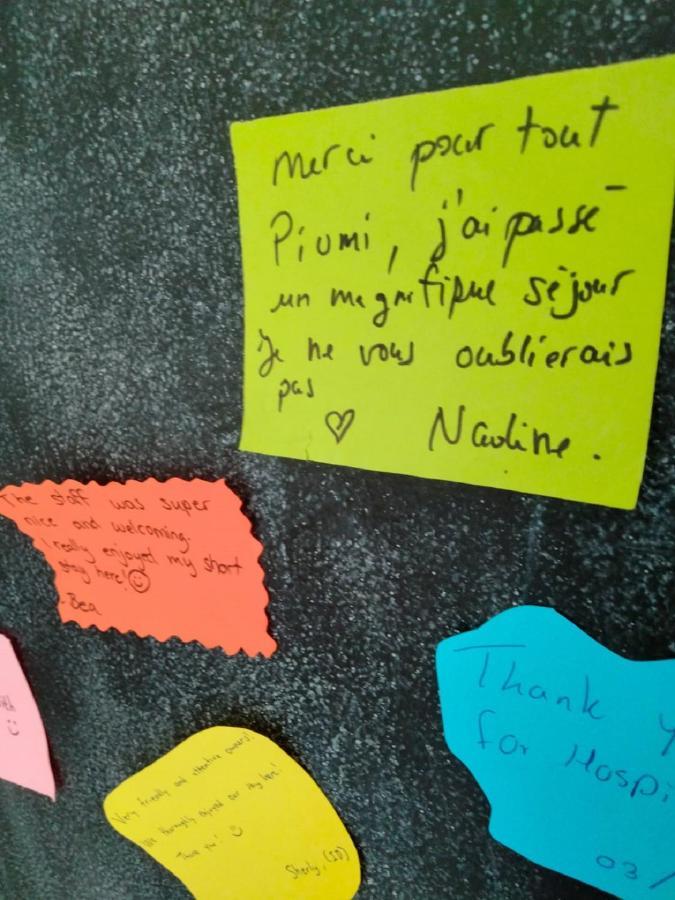 Merci pour tout
Piumi, j'ai passé
un magnifique séjour
Je ne vous oublierais
pas
♡ Nadine.
The staff was super
nice and welcoming.
I really enjoyed my short
stay here! ☺
-Bea
Thank
for Hospi
03/
Very friendly and attentive owners!
We thoroughly enjoyed our stay here!
Thank you! ☺